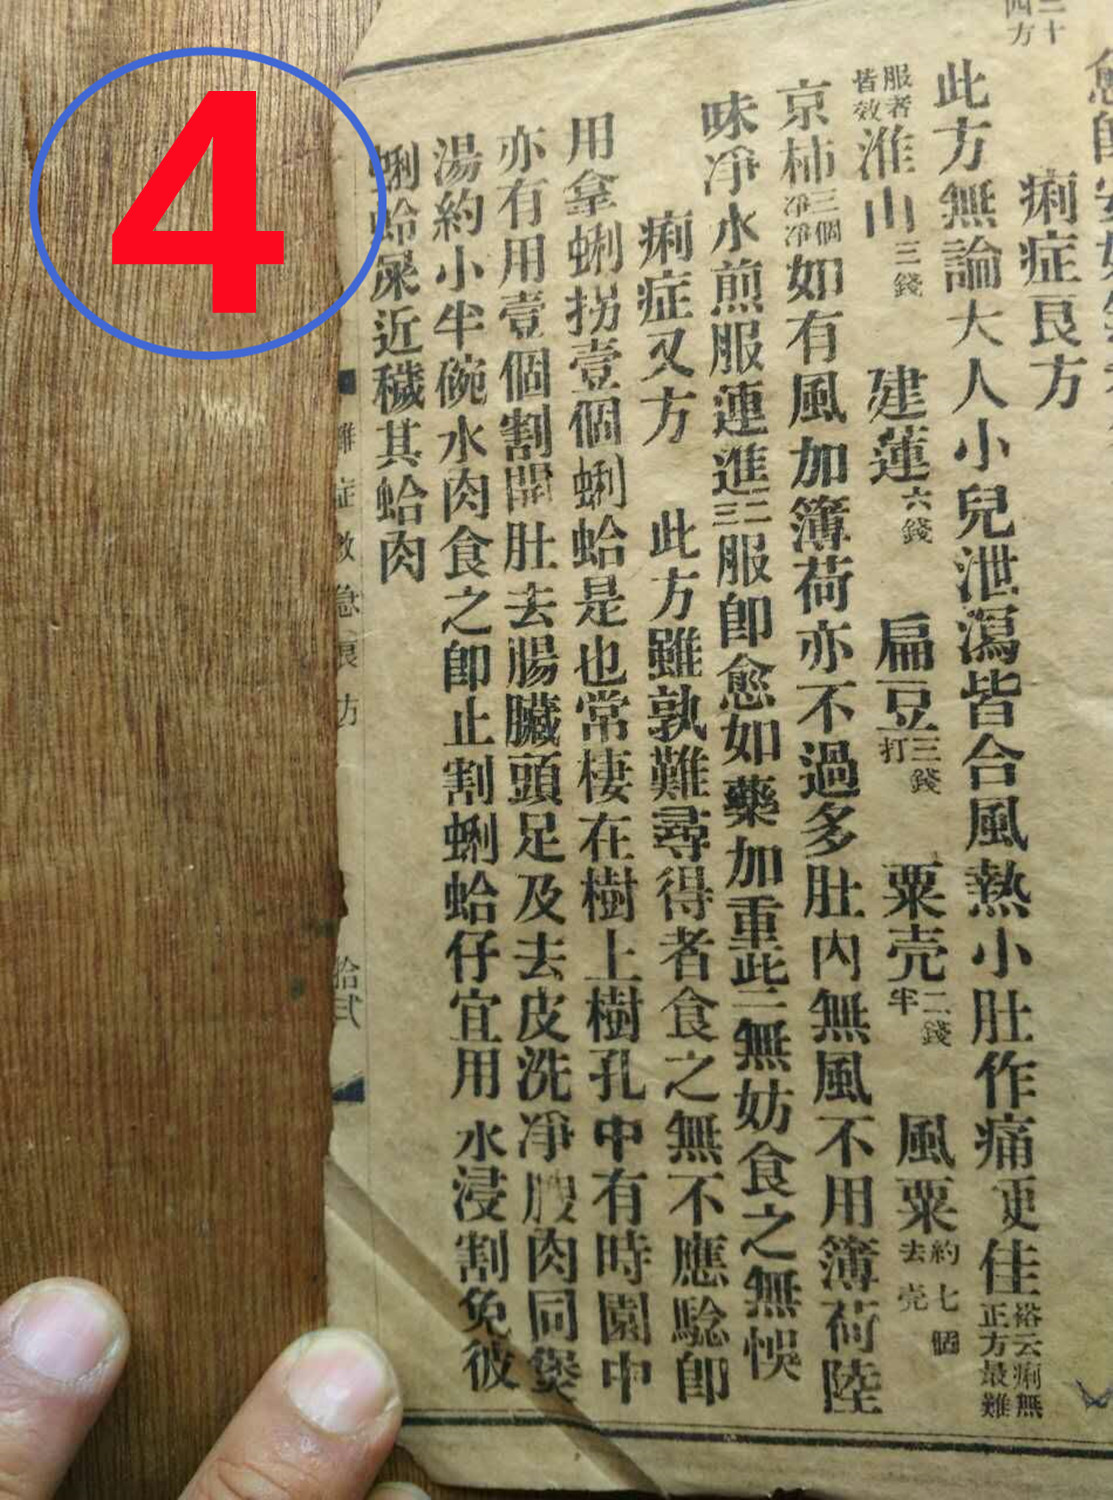 二十
四方
痢症良方
此方無論大人小兒泄瀉皆合風熱小肚作痛更佳俗云痢無正方最難
服者皆效淮山三錢 建蓮六錢 扁豆三錢打 粟壳二錢牢 風粟約七個去壳
京柿三個淨淨如有風加簿荷亦不過多肚內無風不用簿荷陸
味淨水煎服連進二三服卽愈如藥加重些三無妨食之無悞
痢症又方 此方雖孰難尋得者食之無不應驗卽
用拿蜊拐壹個蜊蛤是也常棲在樹上樹孔中有時園中
亦有用壹個割開肚去腸臟頭足及去皮洗淨腍肉同煲
湯約小半碗水肉食之卽止割蜊蛤仔宜用水浸割免彼
蜊蛤屎近穢其蛤肉
雜症救急良方
拾弍
4